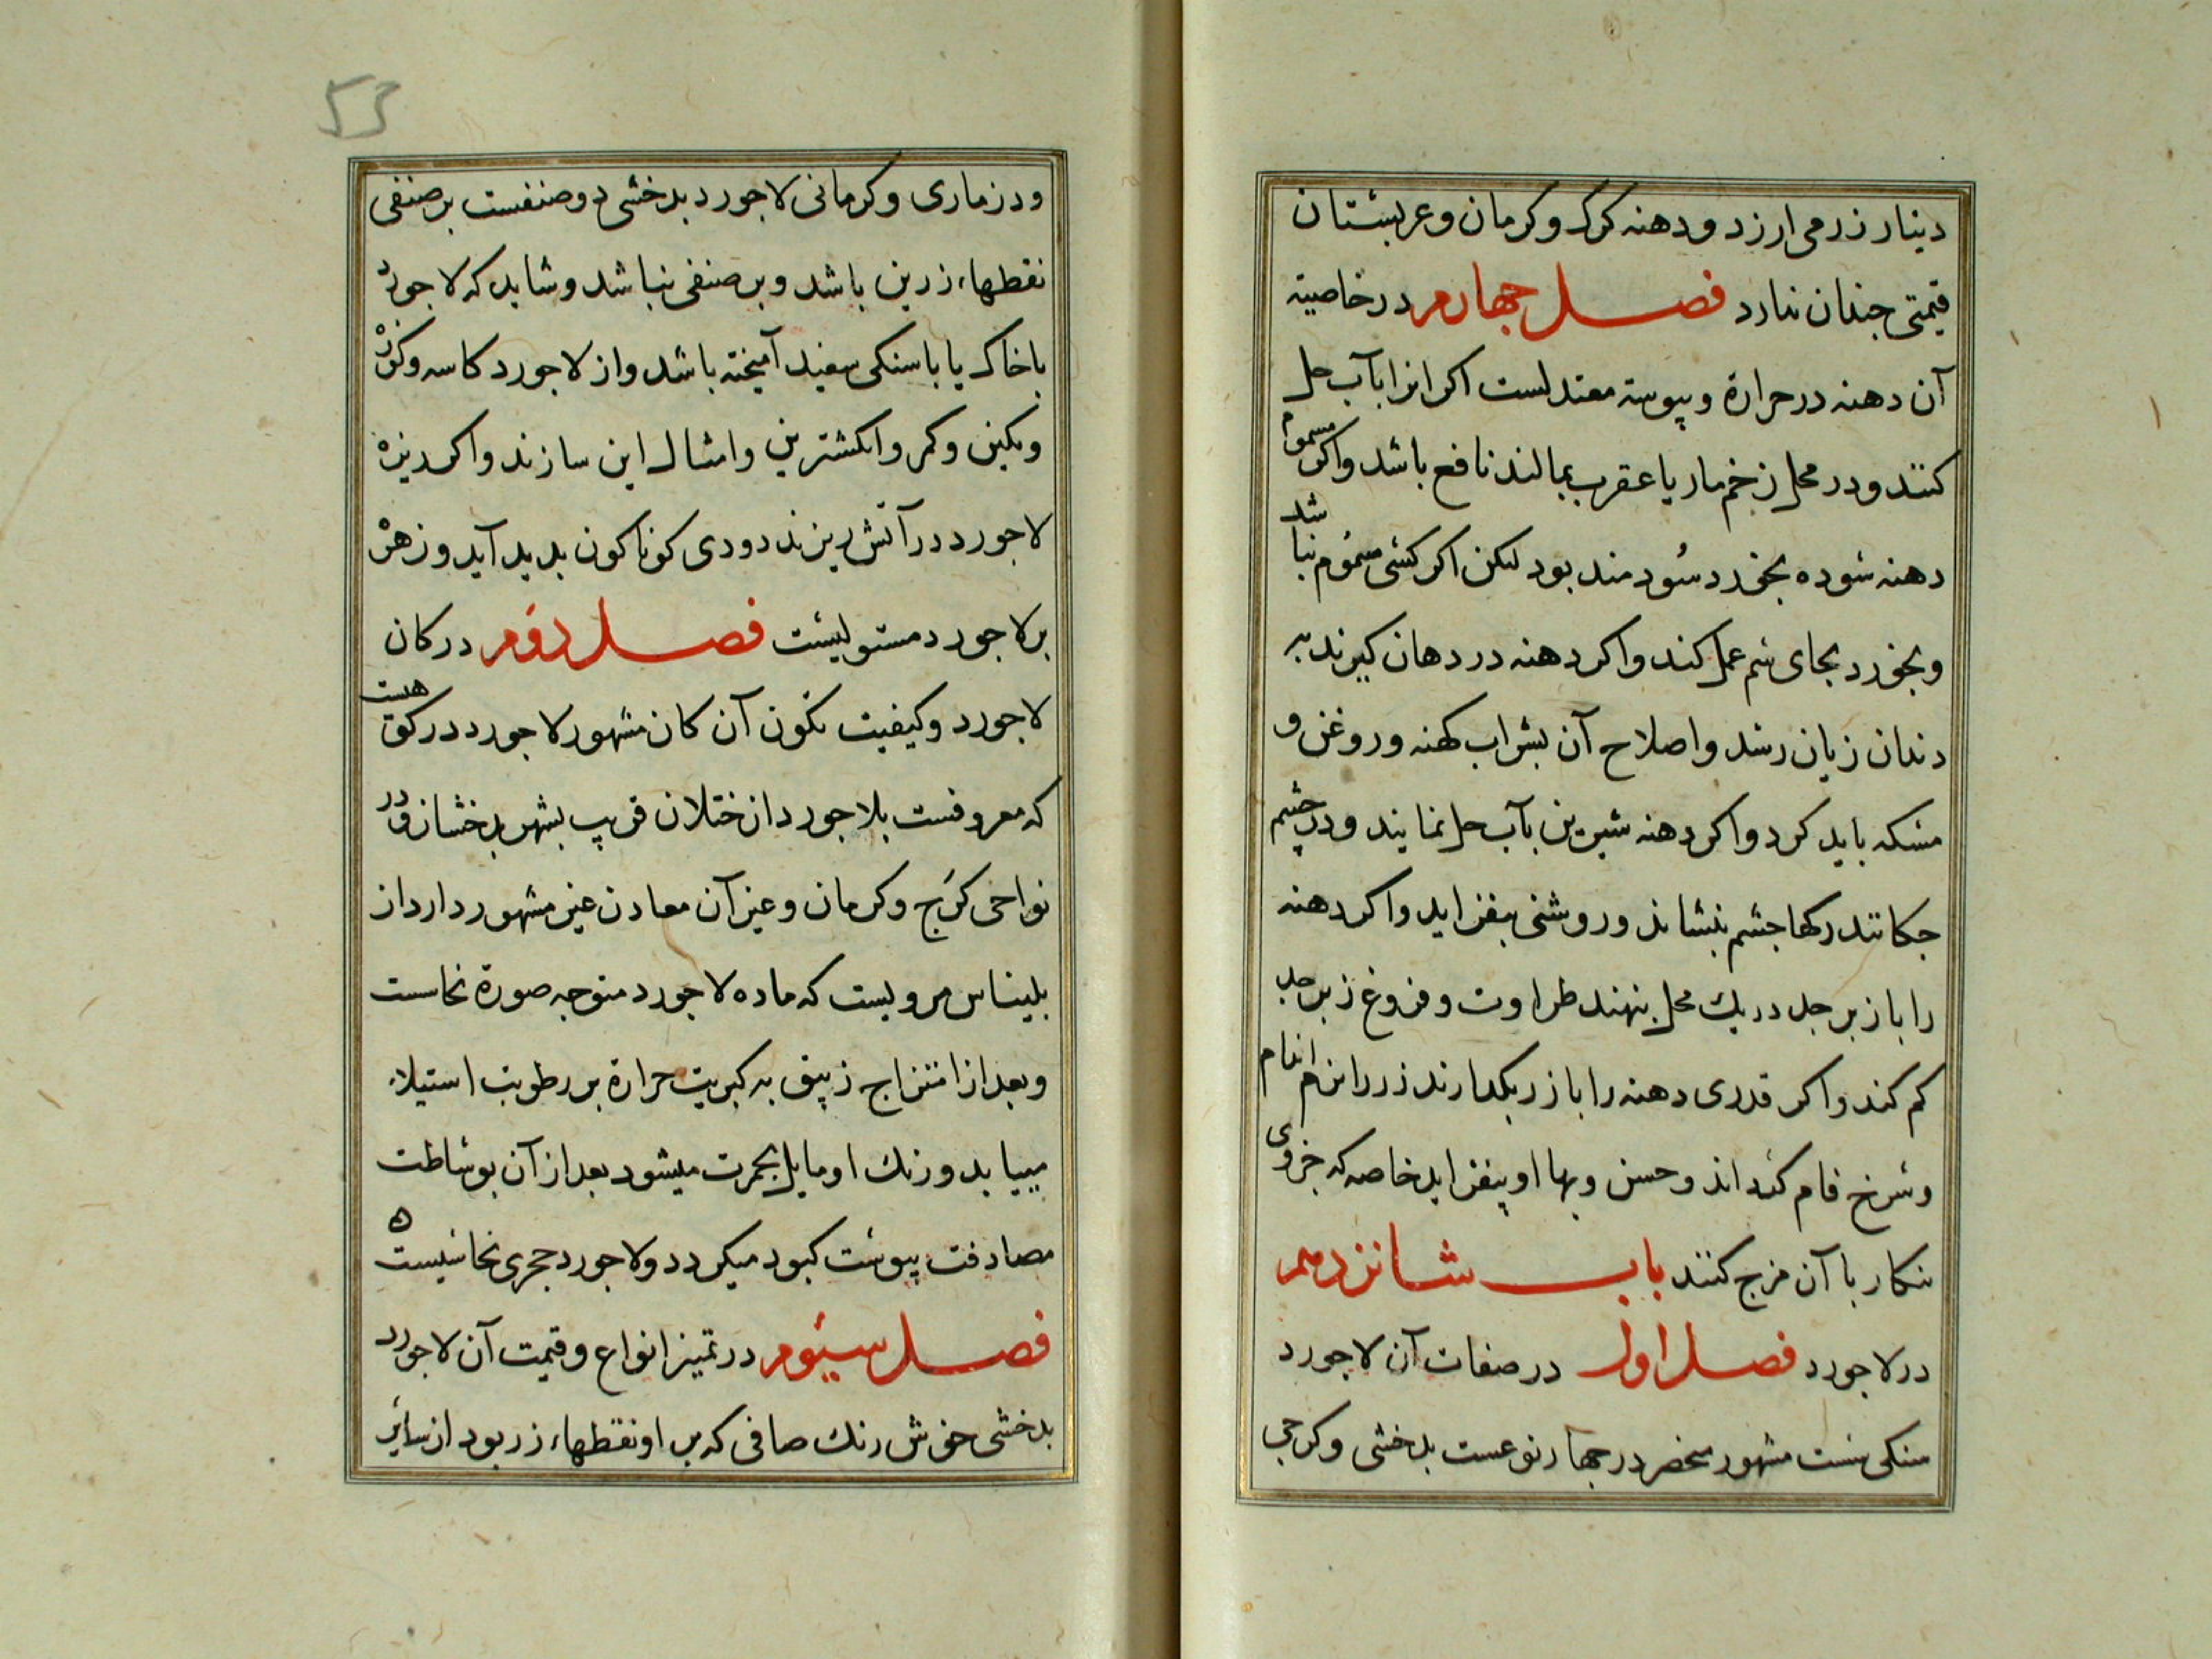 دینار زر می ارزد و دهنه کرک و کرمان و عربستان
قیمتی جندان ندارد فصل جهارم در خاصیة
آن دهنه در حرارة و یبوسة معتدلست اکر انرا بآب حل
کنند و در محل زخم مار یا عقرب بمالند نافع باشد و اکر مسموم
دهنه سوده بخورد سودمند بود لیکن اکر کسی مسموم نباشد
و بخورد بجای سم عمل کند و اکر دهنه در دهان کیرند به
دندان زیان رسد و اصلاح آن بشراب کهنه و روغن و
مسکه باید کرد و اکر دهنه شیرین بآب حل نمایند و در چشم
جکانند رکها جشم بنشاند و روشنی بیفزاید و اکر دهنه
را با زبرجد در یک محل بنهند طراوت و فروغ زبرجد
کم کند و اکر قدری دهنه را با زر بکدارند زر را نرم اندام
و سرخ فام کرداند و حسن و بها او بیفزاید خاصه که جزوی
تنکار با آن مزج کنند باب شانزدهم
در لاجورد فصل اول در صفات آن لاجورد
سنکی ست مشهور منحصر در جهار نوعست بدخشی و کرجی
53
و دزماری و کرمانی لاجورد بدخشی دو صنفست بر صنفی
نقطهاء زرین باشد و بر صنفی نباشد و شاید که لاجورد
با خاک یا با سنکی سفید آمیخته باشد و از لاجورد کاسه و کوزه
و نکین و کمر و انکشترین و امثال این سازند و اکر ریزه
لاجورد در آتش ریزند دودی کوناکون بدید آید و زهره
بر لاجورد مستولیست فصل دوم در کان
لاجورد و کیفیت تکون آن کان مشهور لاجورد در کوهیست
که معروفست بلاجورد از ختلان قریب بشهر بدخشان و در
نواحی کرج و کرمان و غیر آن معادن غیر مشهور دارد از
بلیناس مرویست که ماده لاجورد متوجه صورة نحاست
و بعد از امتزاج زیبق به کبریت حرارة بر رطوبت استیلاء
مییابد و رنک او مایل بحمرت میشود بعد از آن بوساطت
مصادفت یبوست کبود میکردد و لاجورد حجری نحاسیست ه
فصل سیوم در تمیز انواع و قیمت آن لاجورد
بدخشی خوش رنک صافی که بر او نقطهاء زر بود از سایر